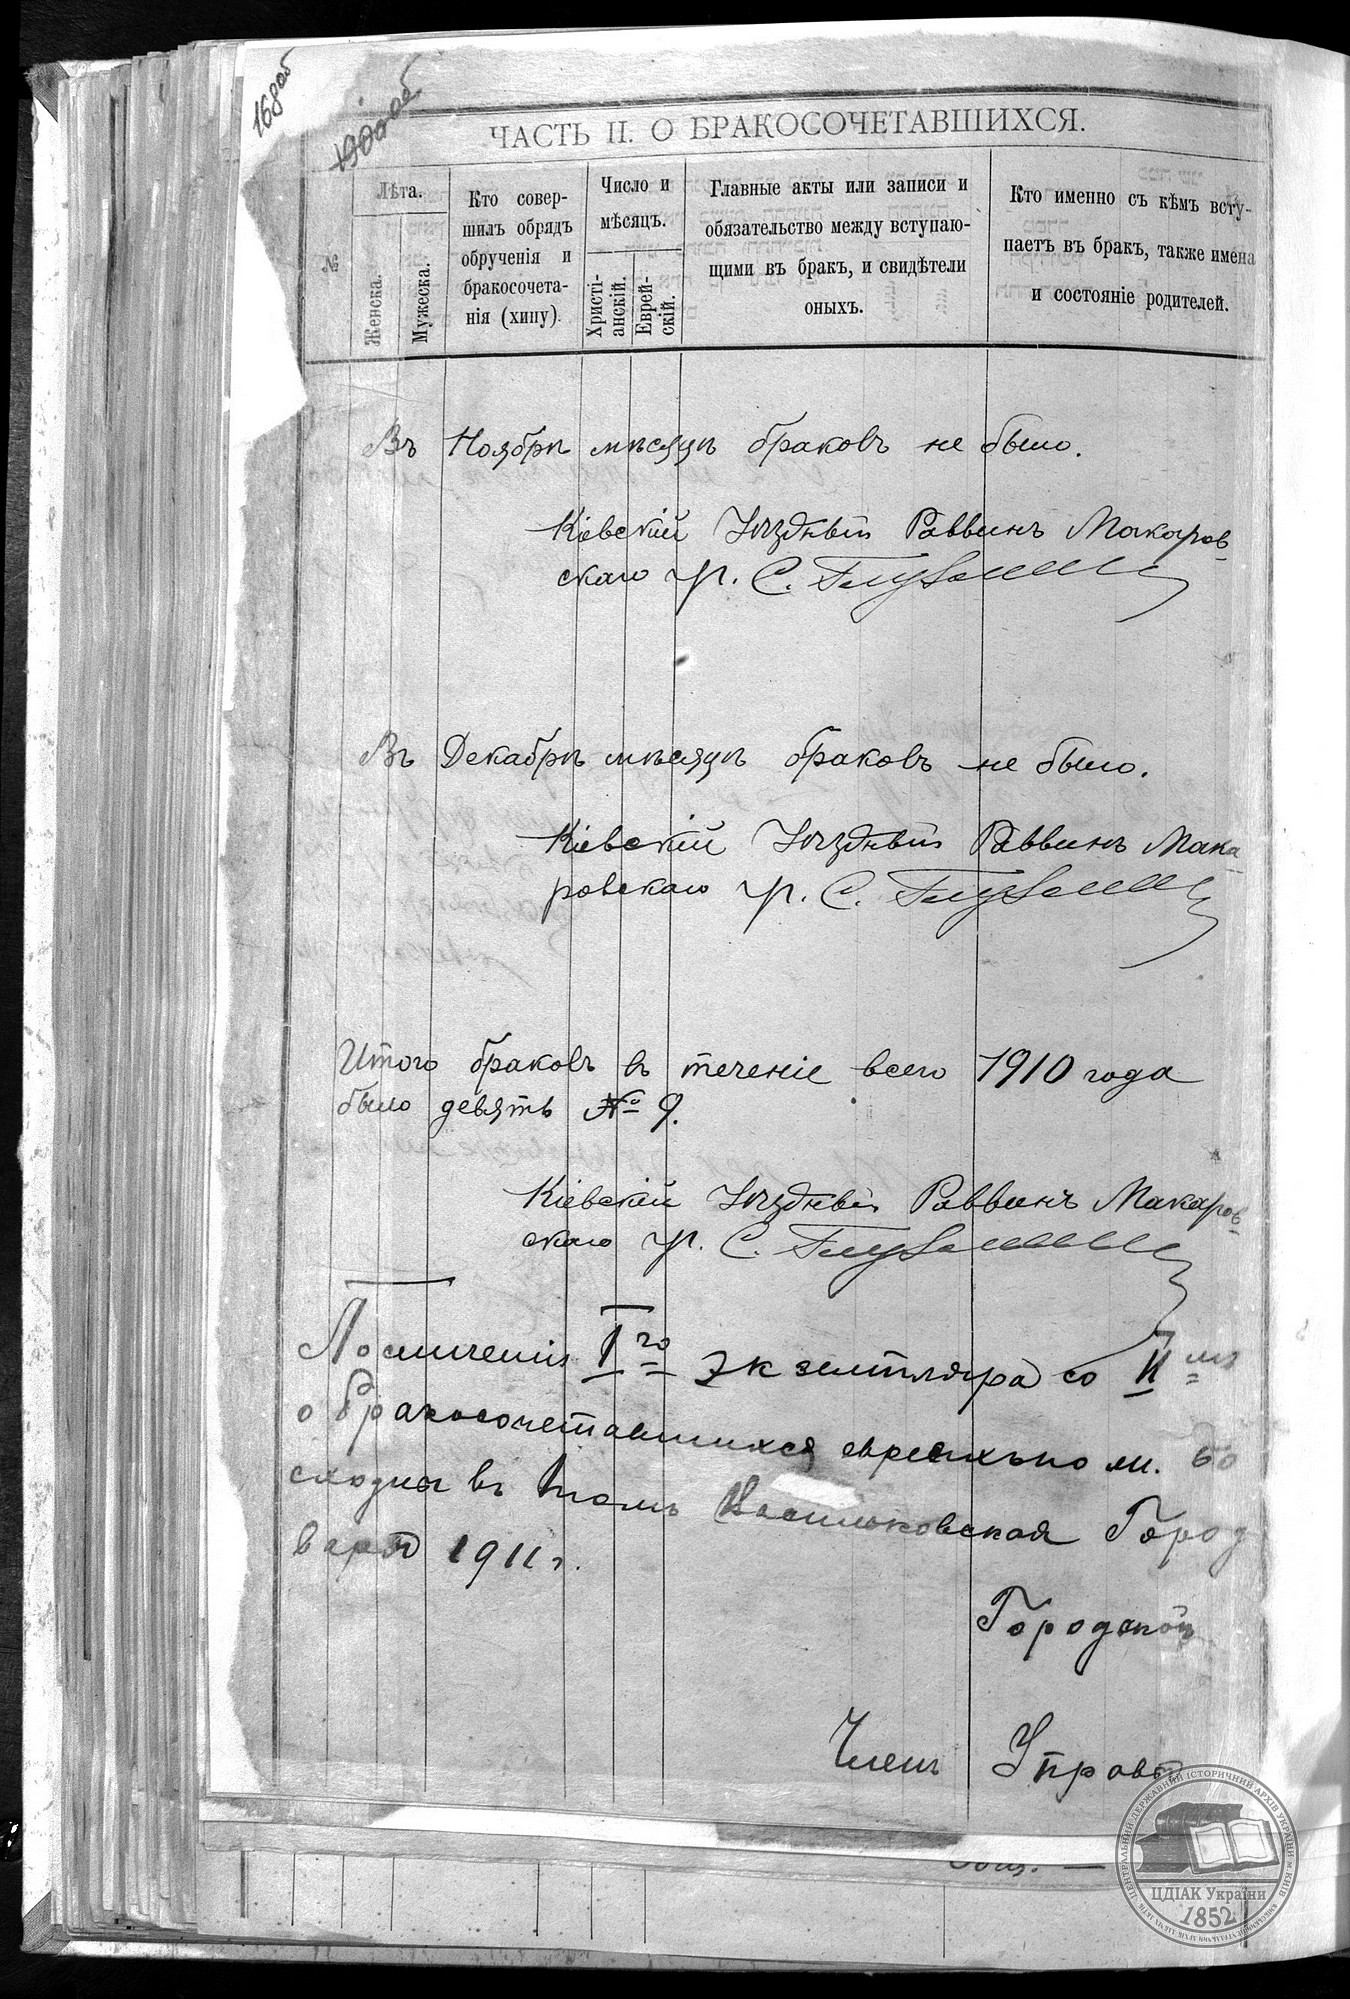 168об
ЧАСТЬ II. О БРАКОСОЧЕТАВШИХСЯ.
№
Лѣта.
Женска.
Мужеска.
Кто совер-
шилъ обрядъ
обрученія и
бракосочета-
нія (хипу).
Число и
мѣсяцъ.
Христі-
анскій.
Еврей-
скій.
Главные акты или записи и
обязательство между вступаю-
щими въ бракъ, и свидѣтели
оныхъ.
Кто именно съ кѣмъ всту-
паетъ въ бракъ, также имена
и состояніе родителей.
Въ Ноябрѣ мѣсяцѣ браковъ не было.
Кіевскій Уѣздный Раввинъ Макаров-
скаго р. С.
Въ Декабрѣ мѣсяцѣ браковъ не было.
Кіевскій Уѣздный Раввинъ Мака-
ровскаго р. С.
Итого браковъ въ теченіе всего 1910 года
было девять № 9.
Кіевскій Уѣздный Раввинъ Макаров-
скаго р. С.
По сличеніи Iго экземпляра со IIмъ
о бракосочетавшихся евреяхъ по м.
сходны въ томъ Васильковская Город
1911 г.
Городской
Членъ Управы
ЦЕНТРАЛЬНИЙ ДЕРЖАВНИЙ ІСТОРИЧНИЙ АРХІВ УКРАЇНИ м. КИЇВ
ЦДІАК України
1852